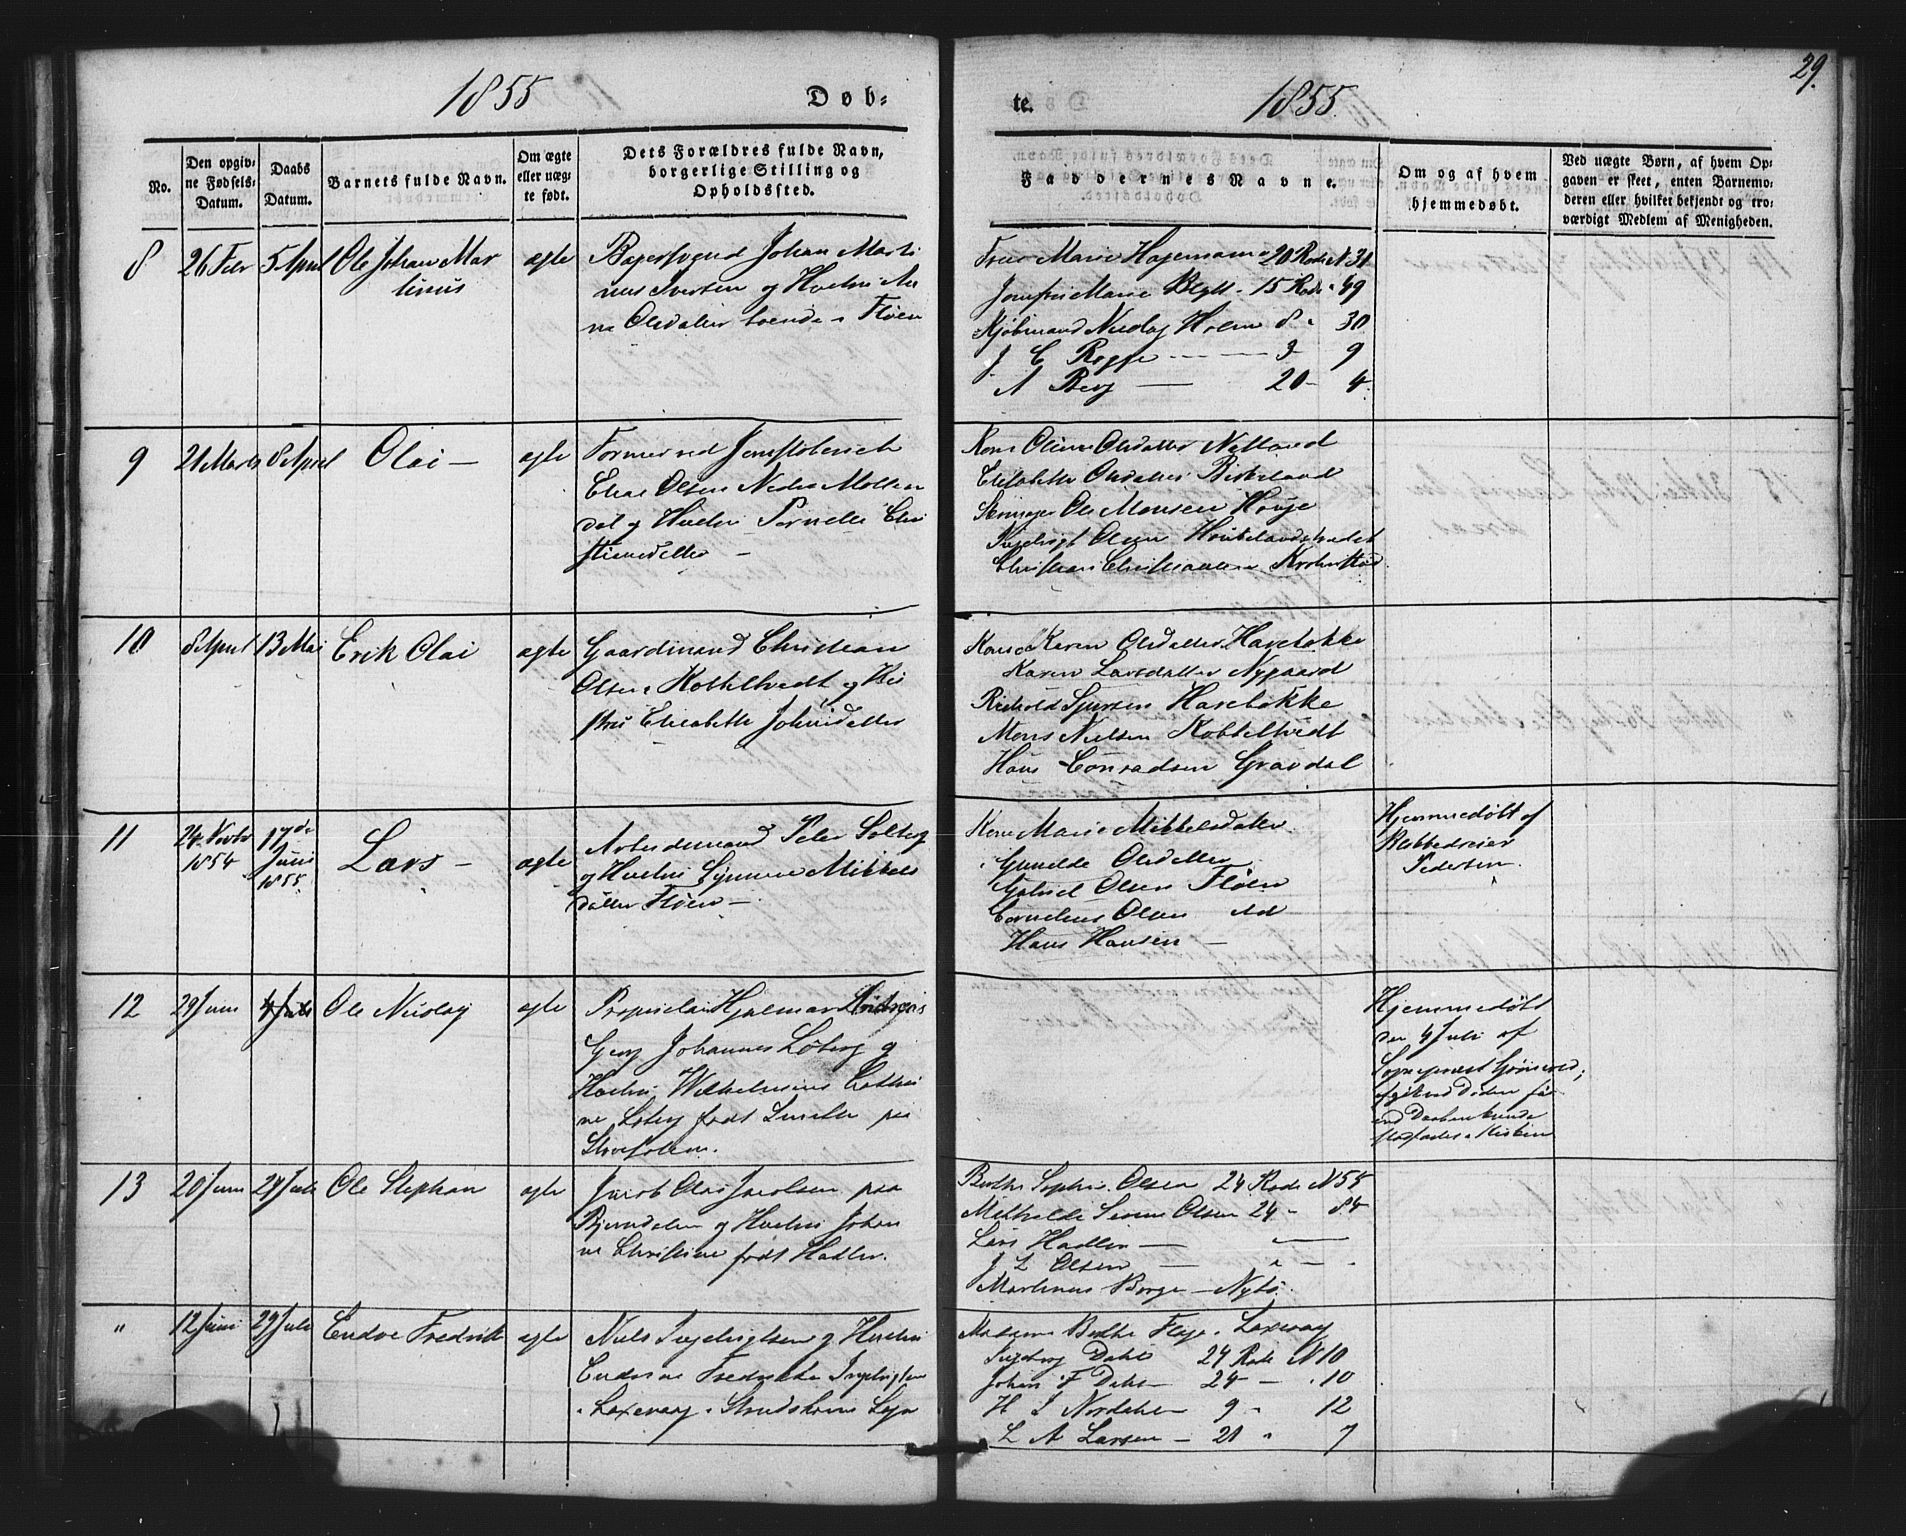 29.
1855 Døb-
te. 1855.
No.
Den opgiv-
ne Fødsels-
Datum.
Daabs
Datum.
Barnets fulde Navn.
Om ægte
eller uæg-
te født.
Dets Forældres fulde Navn,
borgerlige Stilling og
Opholdssted.
Faddernes Navne.
Om og af hvem
hjemmedøbt.
Ved uægte Børn, af hvem Op-
gaven er skeet, enten Barnemo-
deren eller hvilket bekjendt og tro-
værdigt Medlem af Menigheden.
8 26 Febr 5 April Ole Johan Mar
tinus
ægte
Bagersvend Johan Marti
nus Iversen og Hustru An
ne Olsdatter boende i Fløen
Marie Hagemann 20 Rode N 31
Jomfru Marie Blytt - 15 Rode - 49
Kjøbmand Nicolay Holm 8 - 30
J C Rogge - 3 - 9
A Berg - 20 - 4.
9 21 Marts 8 April Olai -
ægte
Elias Olsen Nedre Møllen
dal og Hustru Pernelle Chri
stiansdatter -
Kone Oline Olsdatter Natland
Elisabeth Olsdatter Birkeland
Ole Monsen Houge
Ingebrigt Olsen
Christian Christiansen Krohnstad
10 8 April 13 Mai Erik Olai
ægte
Gaardmand Christian
Olsen Kobbeltvedt og Hu
stru Elisabeth Johnsdatter
Kone Karen Olsdatter Haveløkke
Karen Larsdatter Nygaard
Sjursen Haveløkke
Mons Nielsen Kobbeltvedt
Hans Conradsen Gravdal
11 24 Novbr
1854
17de
Juni
1855.
Lars -
ægte
Arbeidsmand Peter Solberg
og Hustru Synneve Mikkels
datter Fløen -
Kone Marie Mikkelsdatter
Gunilde Olsdatter
Gabriel Olsen Fløen
Cornelius Olsen
Hans Hansen -
Hjemmedøbt af
Pedersen.
12 29 Juni 4 Juli Ole Nicolay
ægte
Proprietair Hjelmar
Georg Johannes Løberg og
Hustru Wilhelmine Cathri
ne Løberg født
Hjemmedøbt
den 4 Juli af
Sogneprest
13 20 Juni 29 Juli Ole Stephan
ægte
Jacob Olai Jacobsen paa
og Hustru Johan
ne Christine født Hadler.
Berthe Sophie Olsen 24 Rode N 55
Methilde Serine Olsen 24 - 84
Lars Hadler -
J L Olsen -
Martinus Borge - Nybø
" 12 Juni 29 Juli Endre Fredrik
ægte
Niels Ingebrigtsen og Hustru
Fredrikke Ingebrigtsen
i Laxevaag
Madame Berthe Laxevaag
Ingeborg Dahl 24 Rode N 10
Johan F Dahl 24 - 10
H J Nordahl 9 - 12
L A Larsen - 21 - 7